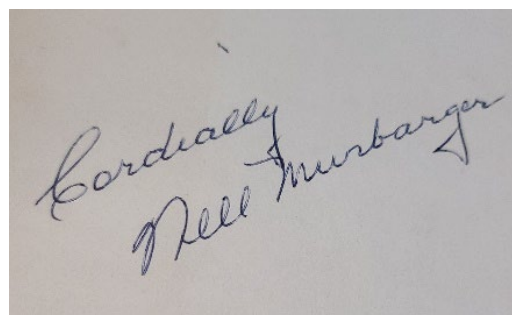 Cordially
Nell Murbarger